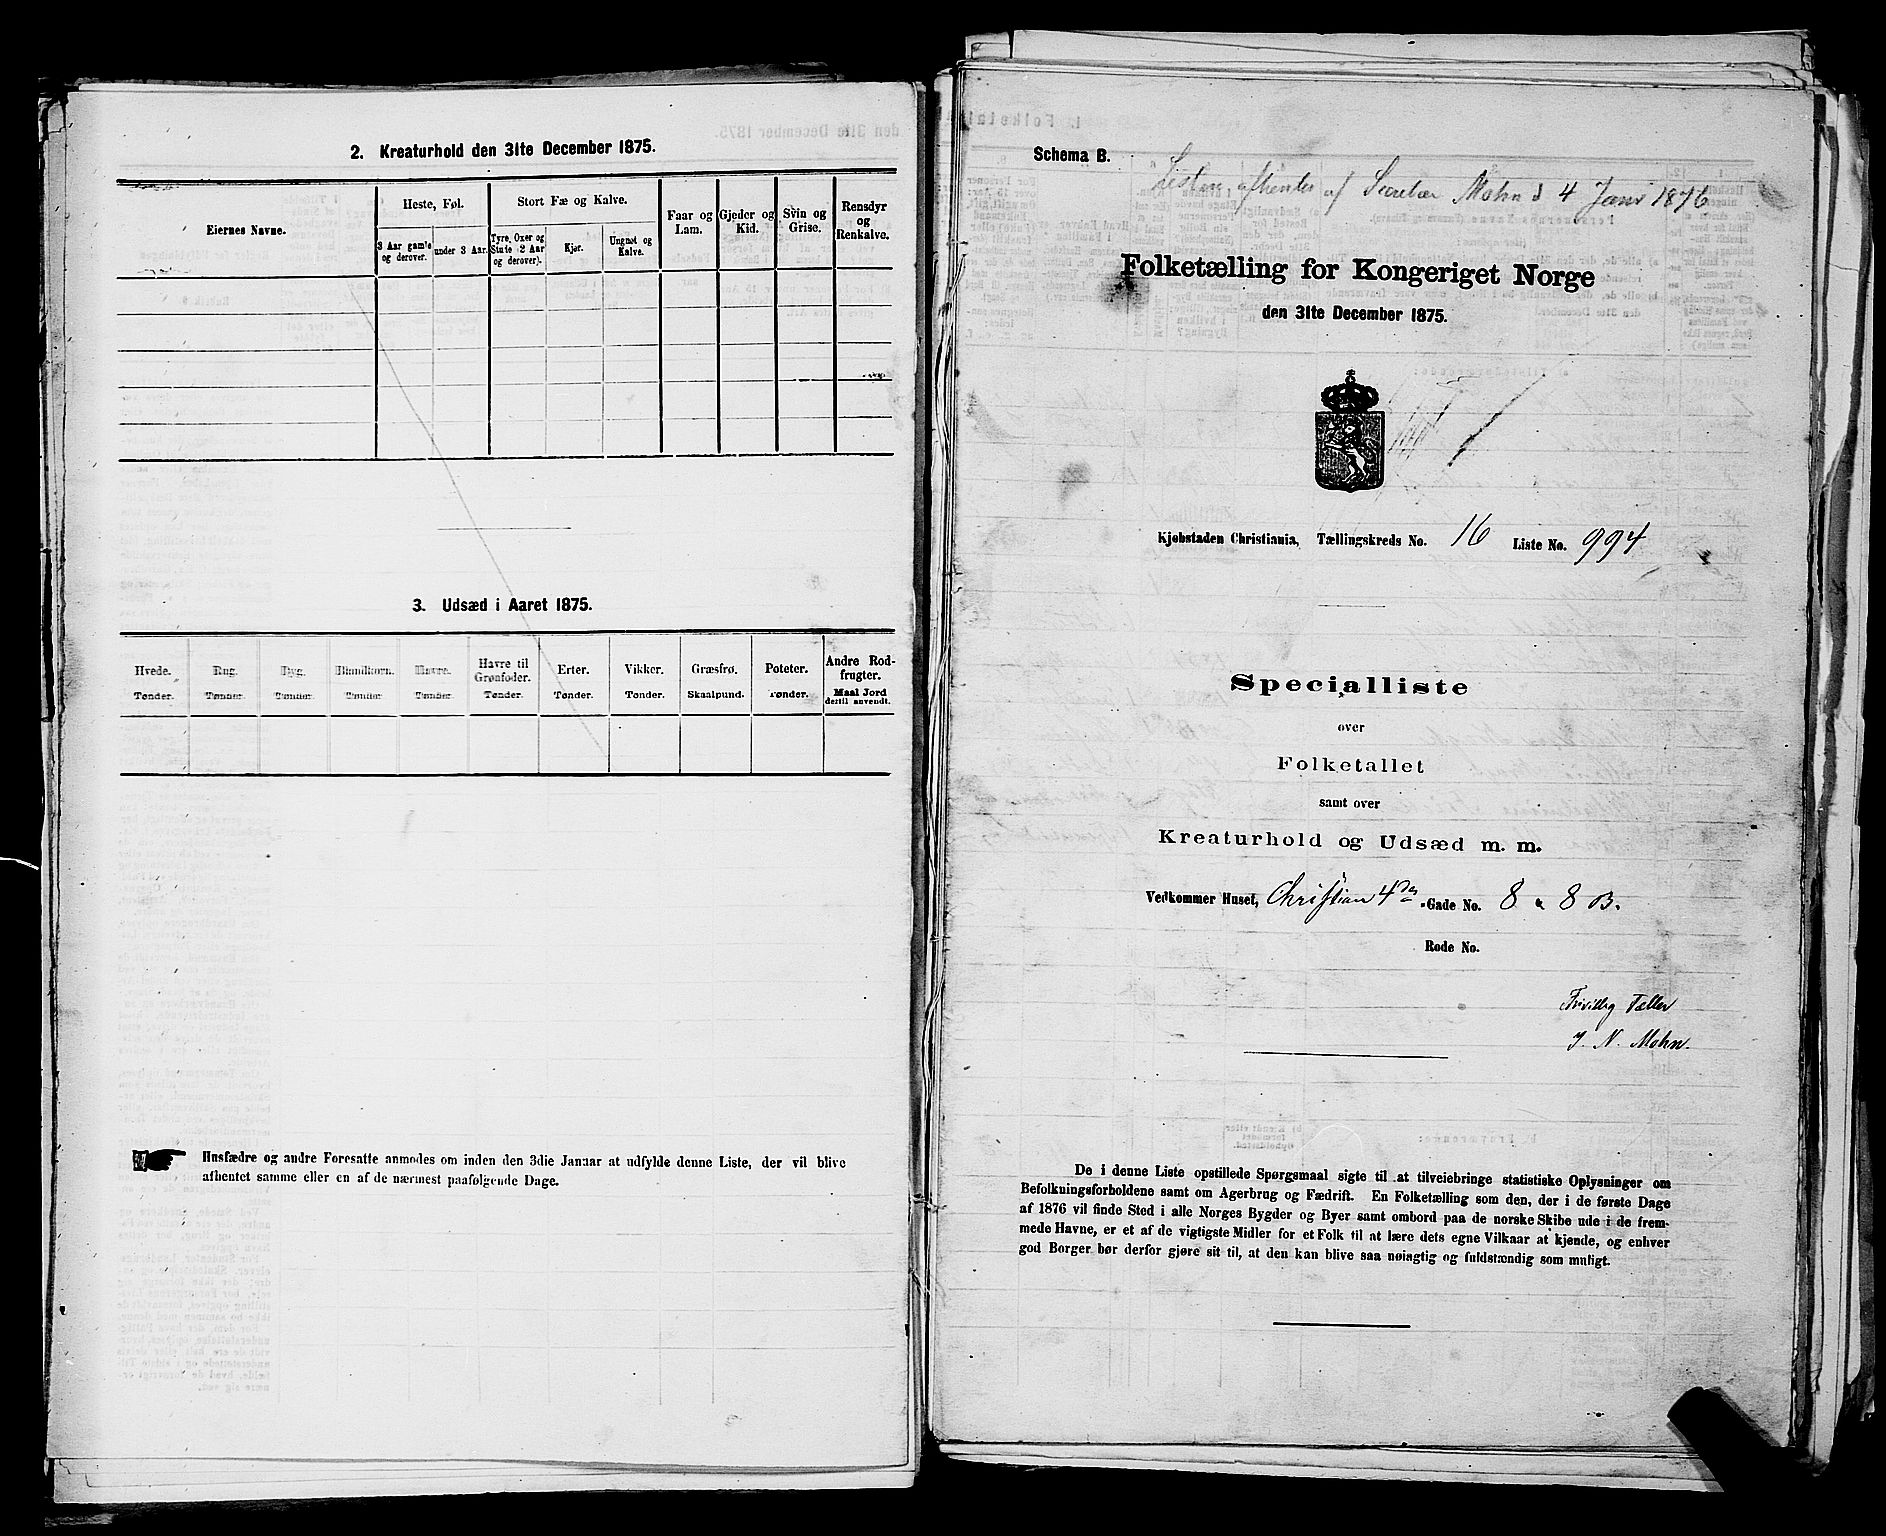 2. Kreaturhold den 31te December 1875.
Eiernes Navne.
Heste, Føl.
Stort Fæ og Kalve.
Faar og
Lam.
Gjeder og
Kid.
Svin og
Grise.
Rensdyr
og
Renkalve.
3 Aar gamle
og derover.
under 3 Aar.
Tyre, Oxer og
Stude (2 Aar
og derover).
Kjør.
Ungnøt og
Kalve.
3. Udsæd i Aaret 1875.
Hvede.
Tønder.
Rug.
Tønder.
Byg.
Tønder.
Blandkorn.
Tønder.
Havre.
Tønder.
Havre til
Grønfoder.
Tønder.
Erter.
Tønder.
Vikker.
Tønder.
Græsfrø.
Skaalpund.
Poteter.
Tønder.
Andre Rod-
frugter.
Maal Jord
dertil anvendt.
Husfædre og andre Foresatte anmodes om inden den 3die Januar at udfylde denne Liste, der vil blive
afhentet samme eller en af de nærmest paafølgende Dage.
Schema B.
Listen afhentes af Secretær Mohn d 4 Janr 1876
Folketælling for Kongeriget Norge
den 31te December 1875.
Kjøbstaden Christiania, Tællingskreds No. 16 Liste No. 994
Specialliste
over
Folketallet
samt over
Kreaturhold og Udsæd m. m.
Vedkommer Huset, Christian 4des Gade No. 8 & 8 B.
Rode No.
Frivillig Tæller
J. N. Mohn.
De i denne Liste opstillede Spørgsmaal sigte til at tilveiebringe statistiske Oplysninger om
Befolkningsforholdene samt om Agerbrug og Fædrift. En Folketælling som den, der i de første Dage
af 1876 vil finde Sted i alle Norges Bygder og Byer samt ombord paa de norske Skibe ude i de frem-
mede Havne, er et af de vigtigste Midler for et Folk til at lære dets egne Vilkaar at kjende, og enhver
god Borger bør derfor gjøre sit til, at den kan blive saa nøiagtig og fuldstændig som muligt.